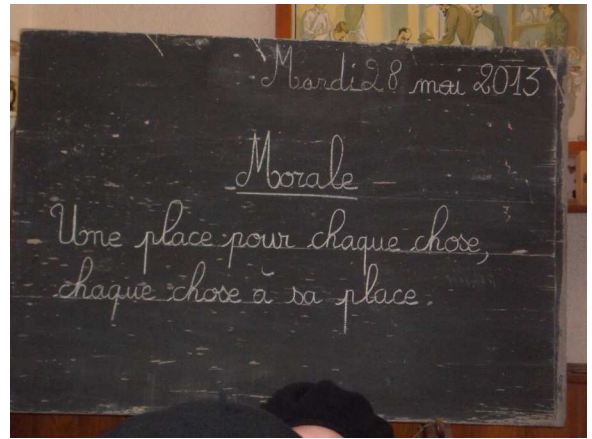 Mardi 28 mai 2013
Morale
Une place pour chaque chose,
chaque chose à sa place.